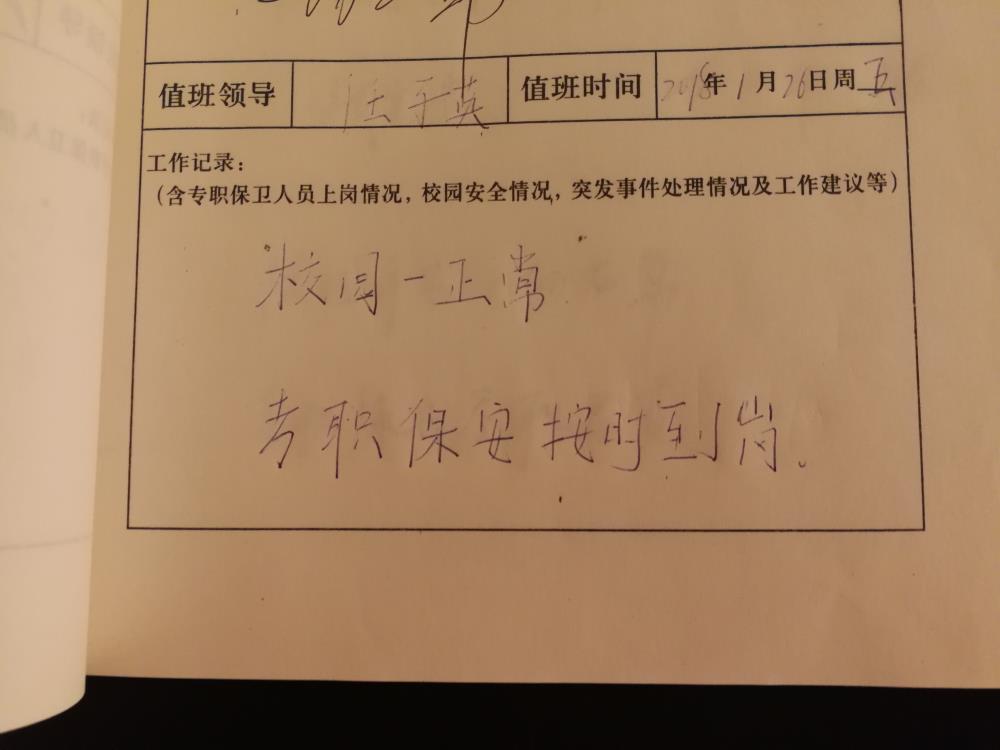 值班领导 汪于英 值班时间 2018年1月26日周五
工作记录：
（含专职保卫人员上岗情况，校园安全情况，突发事件处理情况及工作建议等）
校园一正常
专职保安按时到岗。